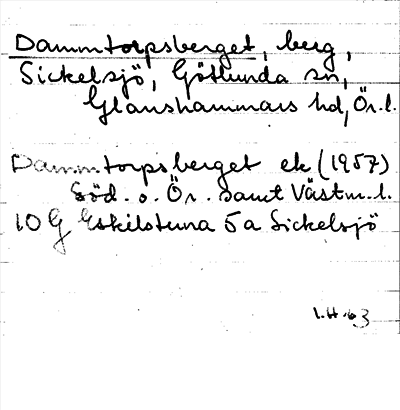 Dammtorpsberget, berg,
Sickelsjö, Götlunda sn,
Glanshammars hd, Ör. l.
Dammtorpsberget ek (1957)
Söd. o. Ör. samt Västm. l.
10 G Eskilstuna 5a Sickelsjö
I.H. 63